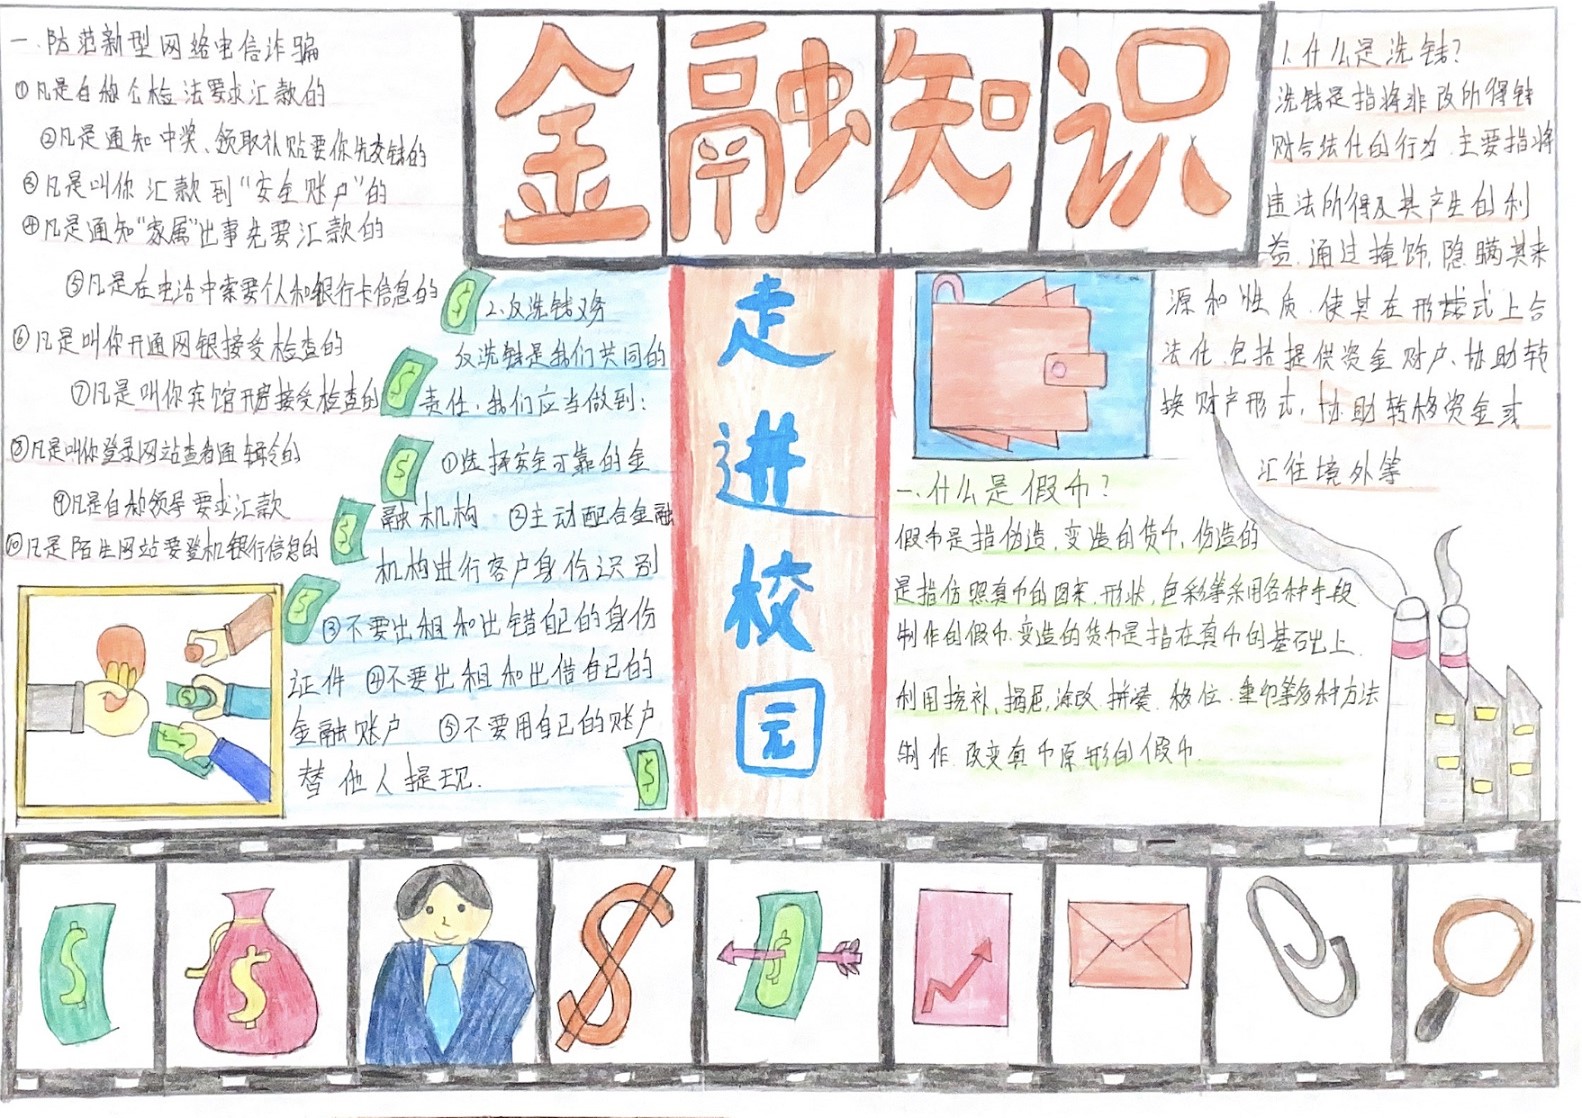 金融知识
走进校园
一.防范新型网络电信诈骗
①凡是自称公检法要求汇款的
②凡是通知中奖、领取补贴要你先交钱的
③凡是叫你汇款到“安全账户”的
④凡是通知“家属”出事先要汇款的
⑤凡是在电话中索要个人和银行卡信息的
⑥凡是叫你开通网银接受检查的
⑦凡是叫你宾馆开房接受检查的
⑧凡是叫你登录网站查看通缉令的
⑨凡是自称领导要求汇款
⑩凡是陌生网站要登机银行信息的
2.反洗钱义务
反洗钱是我们共同的
责任,我们应当做到:
①选择安全可靠的金
融机构 ②主动配合金融
机构进行客户身份识别
③不要出租和出错自己的身份
证件 ④不要出租和出借自己的
金融账户 ⑤不要用自己的账户
替他人提现.
1.什么是洗钱?
洗钱是指将非改所得钱
财合法化的行为.主要指将
违法所得及其产生的利
益.通过掩饰,隐瞒其来
源和性质.使其在形式上合
法化.包括提供资金财户、协助转
换财产形式,协助转移资金或
汇往境外等
一.什么是假币?
假币是指伪造,变造的货币,伪造的
是指仿照真币的图案.形状,色彩等采用各种手段
制作的假币.变造的货币是指在真币的基础上.
利用挖补,揭层,涂改.拼凑.移位.重印等多种方法
制作.改变真币原形的假币.